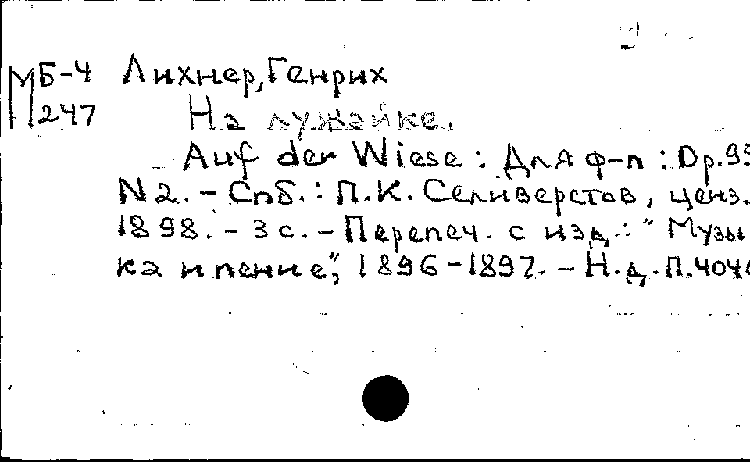 МБ-4 Лихнер, Генрих
247 На лужайке.
Auf der Wiese : Для ф-п : Op.95
N2. - Спб. : П.К. Селиверстов, ценз.
1898. - 3 с. - Перепеч. с изд.: "Музы
ка и пение", 1896-1897. - Н.д. П.404